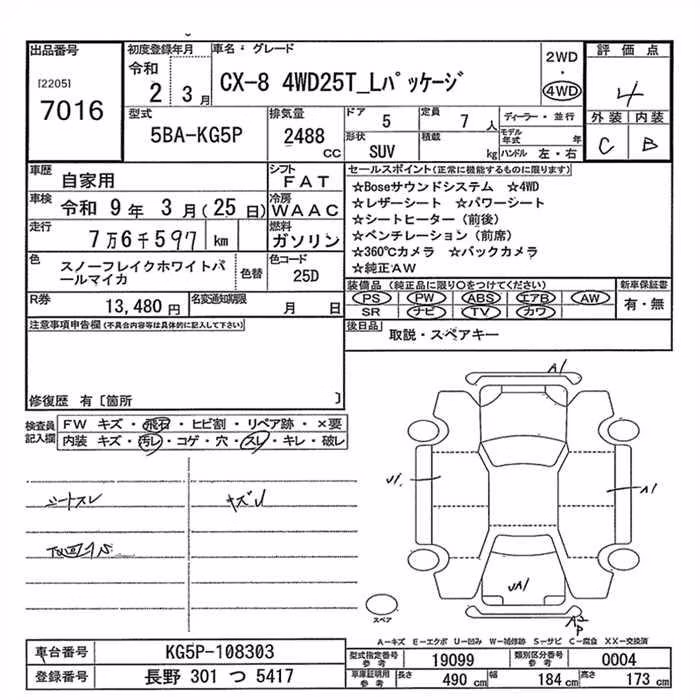 出品番号
[2205]
7016
初度登録年月
令和
2 3月
車名・グレード
CX-8 4WD25T_Lパッケージ
2WD
・
4WD
評価点
4
外装 内装
C B
型式
5BA-KG5P
排気量
2488
CC
ドア
5
定員
7人
形状
SUV
積載
kg
ディーラー・並行
モデル年式 年
ハンドル 左・右
車歴
自家用
シフト
FAT
車検
令和 9年 3月(25日)
冷房
WAAC
走行
7万6千597 km
燃料
ガソリン
色
スノーフレイクホワイトパールマイカ
色替
色コード
25D
R券
13,480円
名変通知期限
月 日
セールスポイント(正常に機能するものに限ります)
☆Boseサウンドシステム ☆4WD
☆レザーシート ☆パワーシート
☆シートヒーター(前後)
☆ベンチレーション(前席)
☆360℃カメラ ☆バックカメラ
☆純正AW
装備品(純正品に限り○をつけてください)
新車保証書
PS PW ABS エアB AW
SR ナビ TV カワ
有・無
後日品
取説・スペアキー
注意事項申告欄(不具合内容等は具体的に記入して下さい)
修復歴 有〔箇所 〕
検査員
記入欄
FW キズ・飛石・ヒビ割・リペア跡・×要
内装 キズ・汚レ・コゲ・穴・スレ・キレ・破レ
シートスレ
キズU
A1
U1
A1
UA1
A2
P
スペア
A－キズ E－エクボ U－凹み W－補修跡 S－サビ C－腐食 XX－交換済
車台番号
KG5P-108303
登録番号
長野 301 つ 5417
型式指定番号
参考
19099
類別区分番号
参考
0004
車庫証明用
参考
長さ
490 cm
幅
184 cm
高さ
173 cm